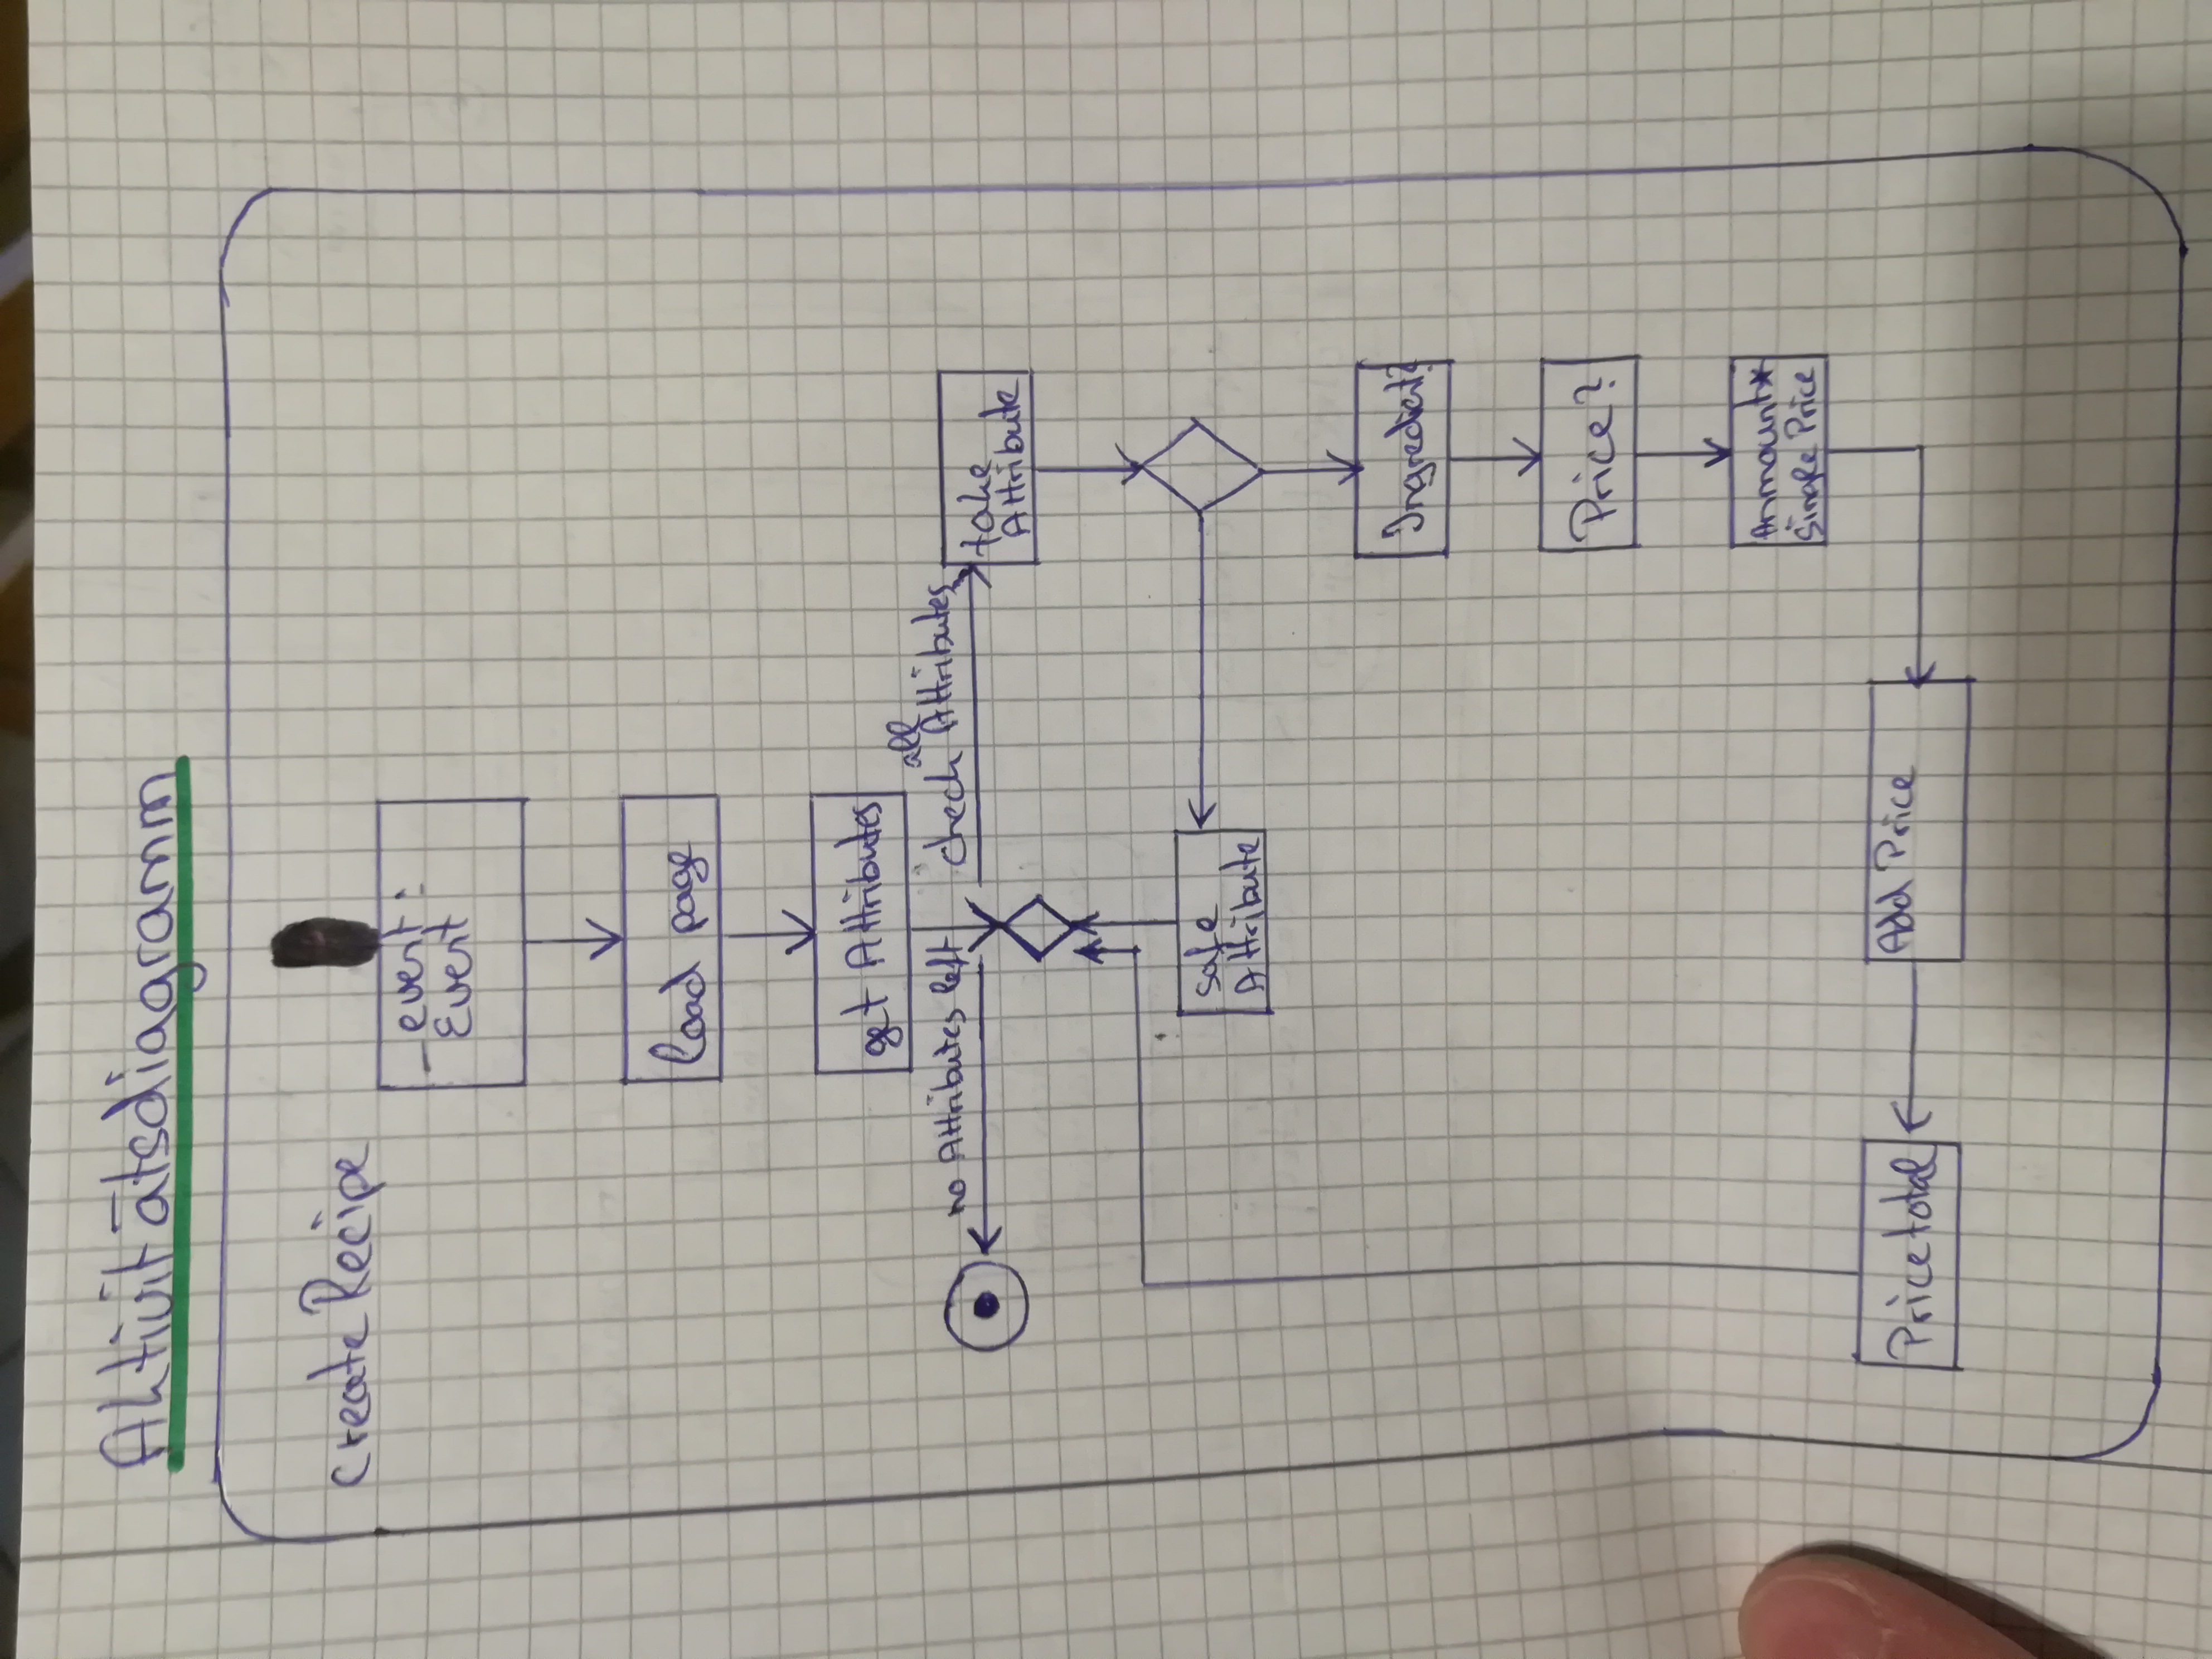 Aktivitätsdiagramm
create Recipe
_event:
Event
load page
get Attributes
no Attributes left
all
check Attributes
take
Attribute
safe
Attribute
Ingredient?
Price?
Anmount*
Single Price
Add Price
Pricetotal